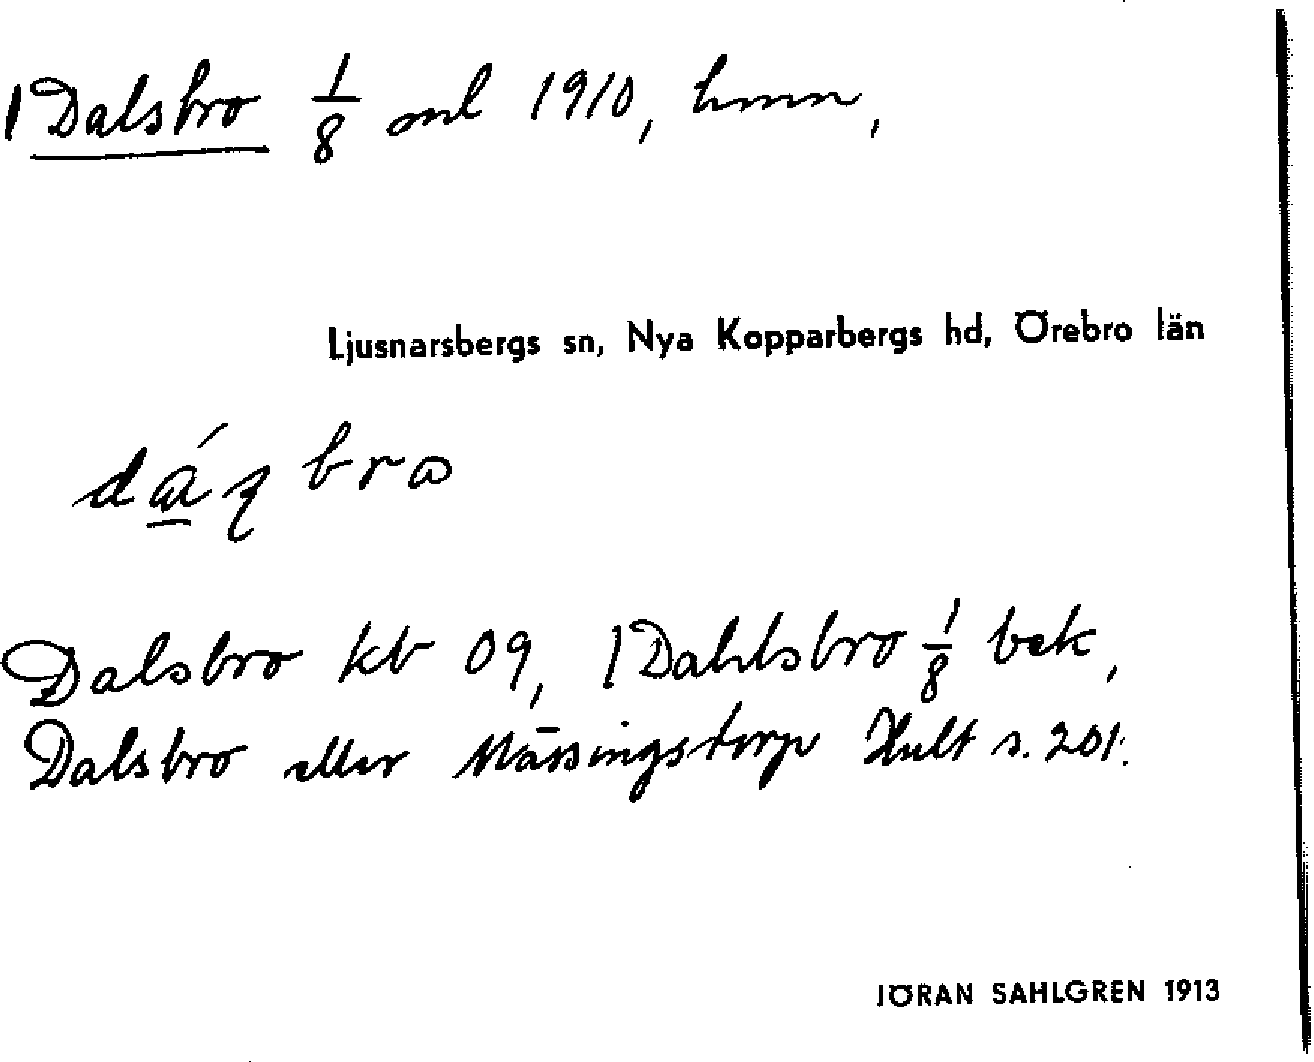 1 Dalsbro 1/8 ml 1910, hmn,
Ljusnarsbergs sn, Nya Kopparbergs hd, Örebro län
Dalsbro kb 09, 1 Dahlsbro 1/8 bek,
Dalsbro eller Mässingstorp Hult s. 201.
JÖRAN SAHLGREN 1913